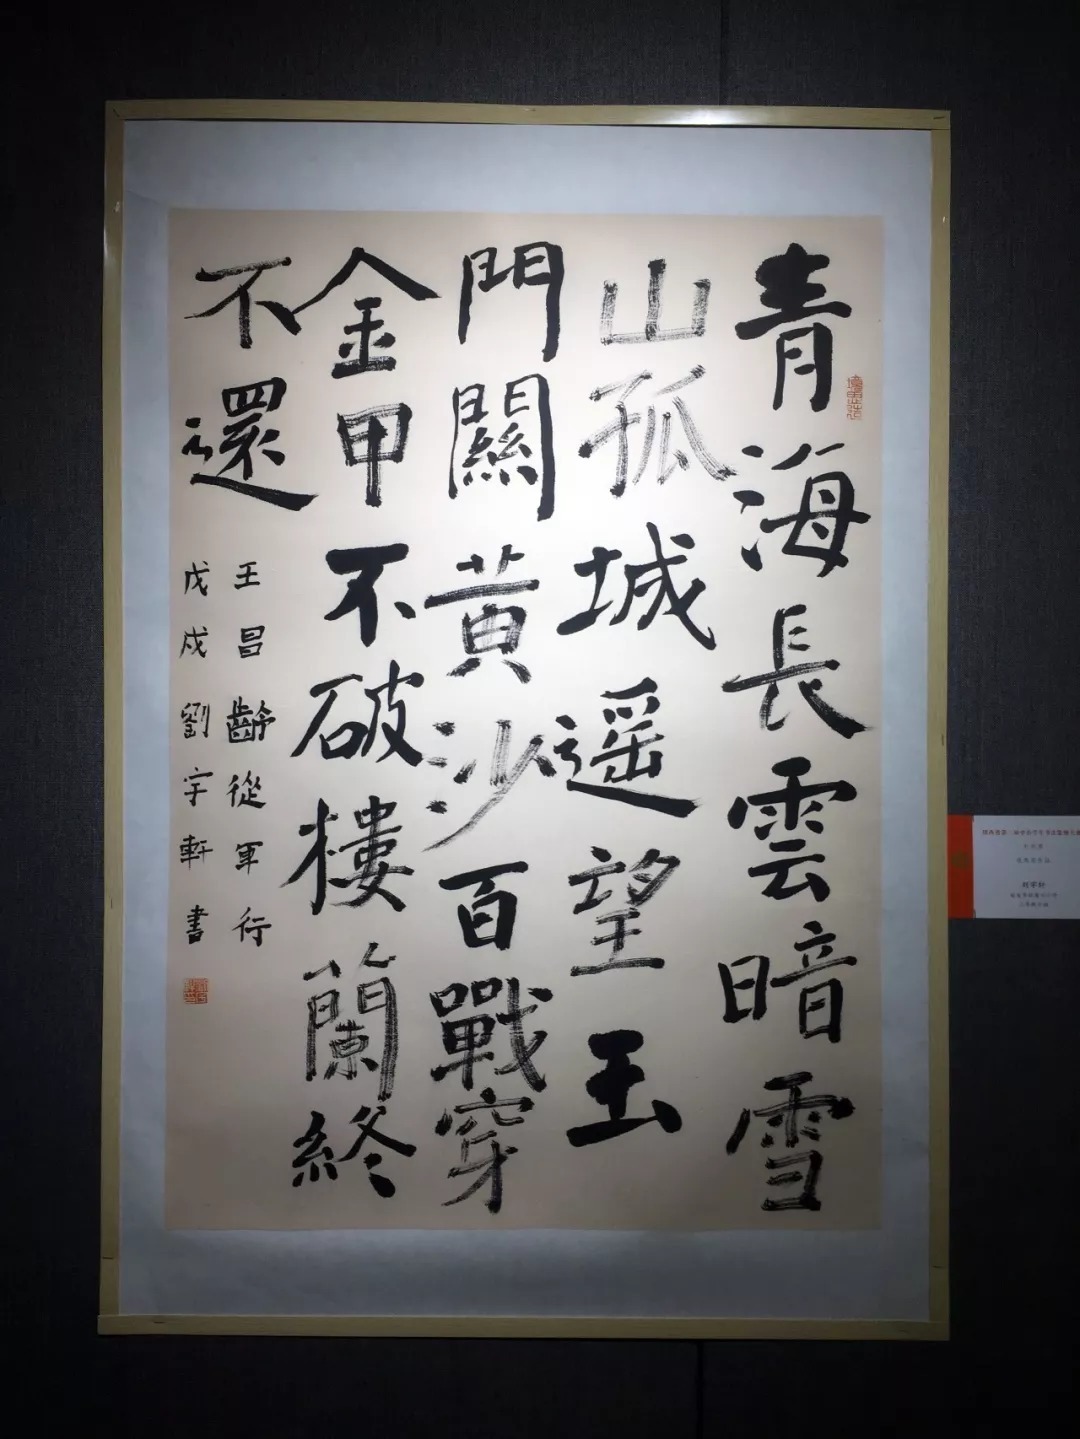 青海長雲暗雪
山孤城遥望玉
門關黄沙百戰穿
金甲不破樓蘭終
不還
王昌齡從軍行
戊戌劉宇軒書